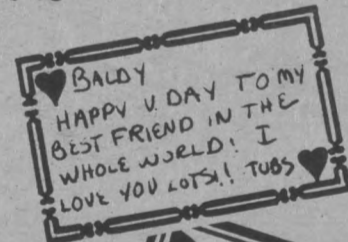 BALDY
HAPPY V. DAY TO MY
BEST FRIEND IN THE
WHOLE WORLD! I
LOVE YOU LOTS!! TUBS